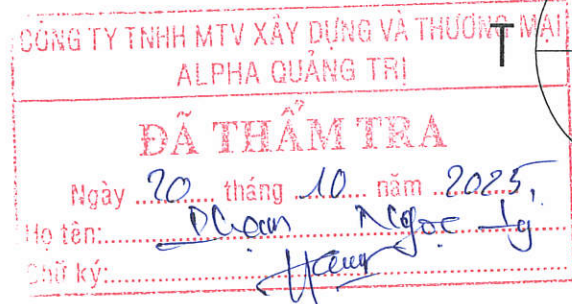 CÔNG TY TNHH MTV XÂY DỰNG VÀ THƯƠNG MẠI
T
ALPHA QUẢNG TRỊ
ĐÃ THẨM TRA
Ngày 20 tháng 10 năm 2025
Họ tên: Ngọc
Chữ ký: